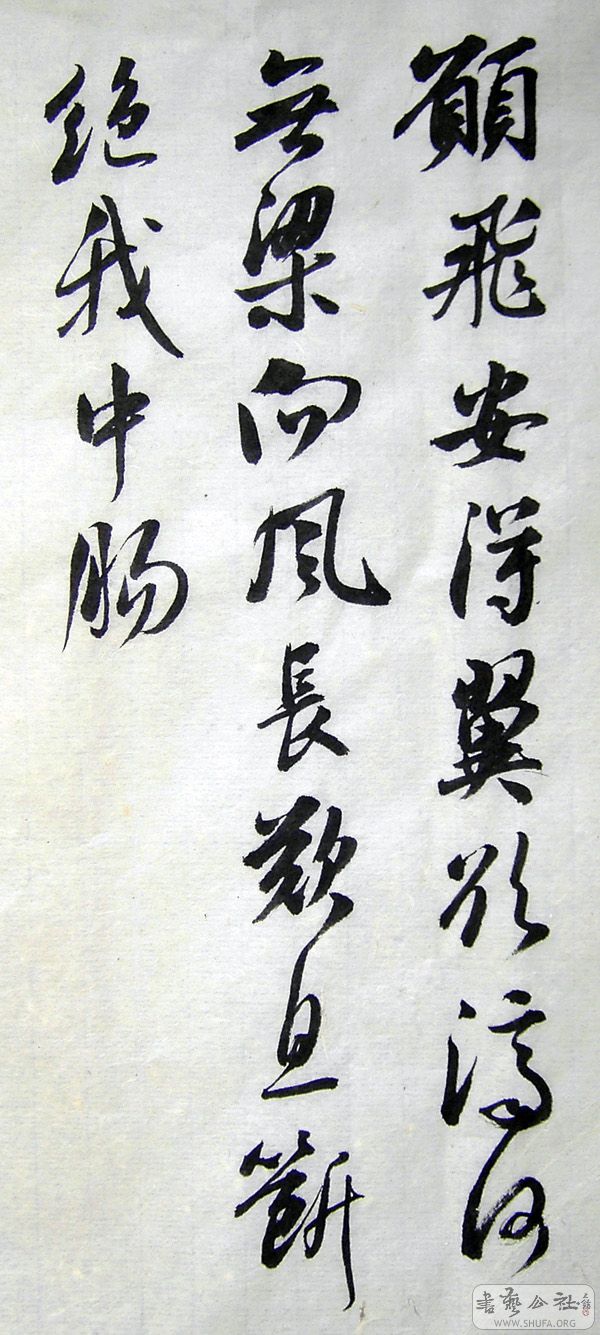 願飛安得翼欲濟河
無梁向風長歎息斷
絕我中腸
書藝公社
WWW.SHUFA.ORG